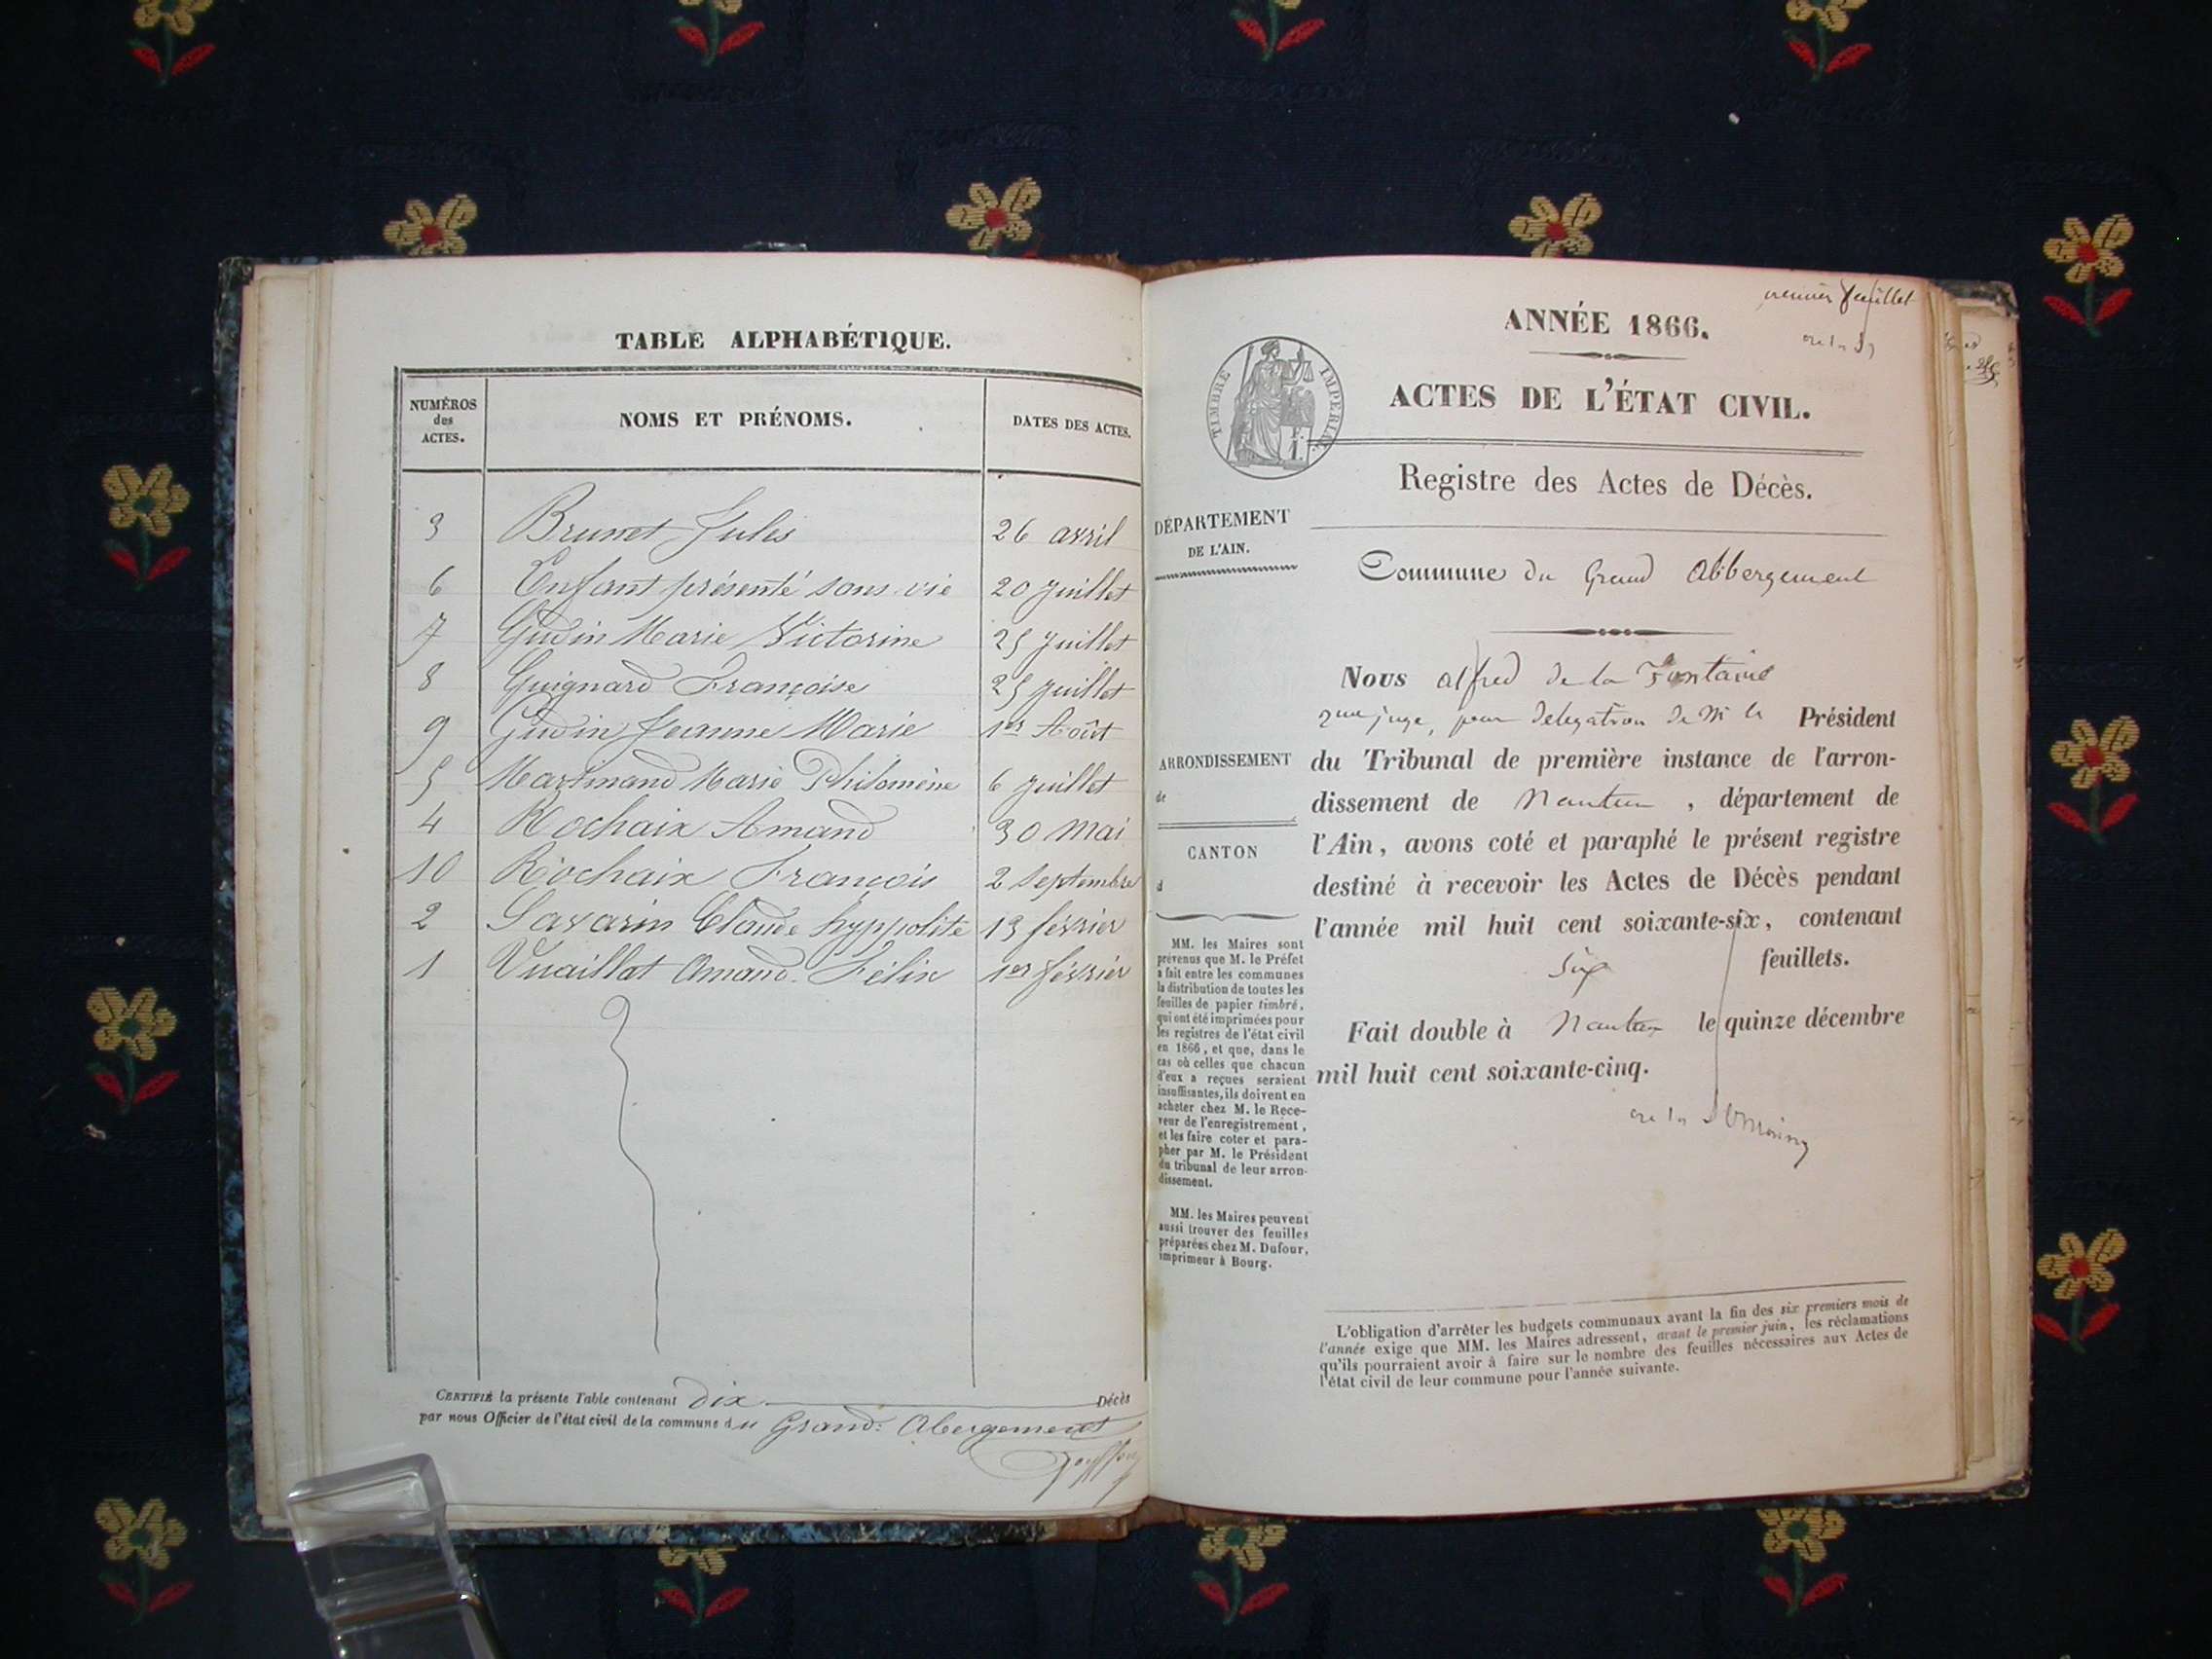 TABLE ALPHABÉTIQUE.
NUMÉROS des ACTES.
NOMS ET PRÉNOMS.
DATES DES ACTES.
3 Brunet Jules 26 avril
6 Enfant présenté sans vie 20 juillet
7 Gudin Marie Victorine 25 juillet
8 Guignard Françoise 25 juillet
9 Gudin Jeanne Marie 1er Août
5 Marmand Marie Philomène 6 juillet
4 Rochaix Amand 30 Mai
10 Rochaix François 2 Septembre
2 Savarin Claude hyppolite 13 février
1 Vuaillat Amand Félix 1er février
CERTIFIÉ la présente Table contenant Dix Décès
par nous Officier de l'état civil de la commune du Grand: Abergement
premier feuillet
ANNÉE 1866.
ACTES DE L'ÉTAT CIVIL.
TIMBRE IMPÉRIAL
Registre des Actes de Décès.
DÉPARTEMENT
DE L'AIN.
Commune du Grand Abbergement
Nous alfred de la Fontaine
juge, pour délégation de Mr le Président
du Tribunal de première instance de l'arron-
dissement de Nantua, département de
l'Ain, avons coté et paraphé le présent registre
destiné à recevoir les Actes de Décès pendant
l'année mil huit cent soixante-six, contenant
Six feuillets.
Fait double à Nantua le quinze décembre
mil huit cent soixante-cinq.
ARRONDISSEMENT
de
CANTON
d
MM. les Maires sont
prévenus que M. le Préfet
a fait entre les communes
la distribution de toutes les
feuilles de papier timbré,
qui ont été imprimées pour
les registres de l'état civil
en 1866, et que, dans le
cas où celles que chacun
d'eux a reçues seraient
insuffisantes, ils doivent en
acheter chez M. le Rece-
veur de l'enregistrement,
et les faire coter et para-
pher par M. le Président
du tribunal de leur arron-
dissement.
MM. les Maires peuvent
aussi trouver des feuilles
préparées chez M. Dufour,
imprimeur à Bourg.
L'obligation d'arrêter les budgets communaux avant la fin des six premiers mois de
l'année exige que MM. les Maires adressent, avant le premier juin, les réclamations
qu'ils pourraient avoir à faire sur le nombre des feuilles nécessaires aux Actes de
l'état civil de leur commune pour l'année suivante.